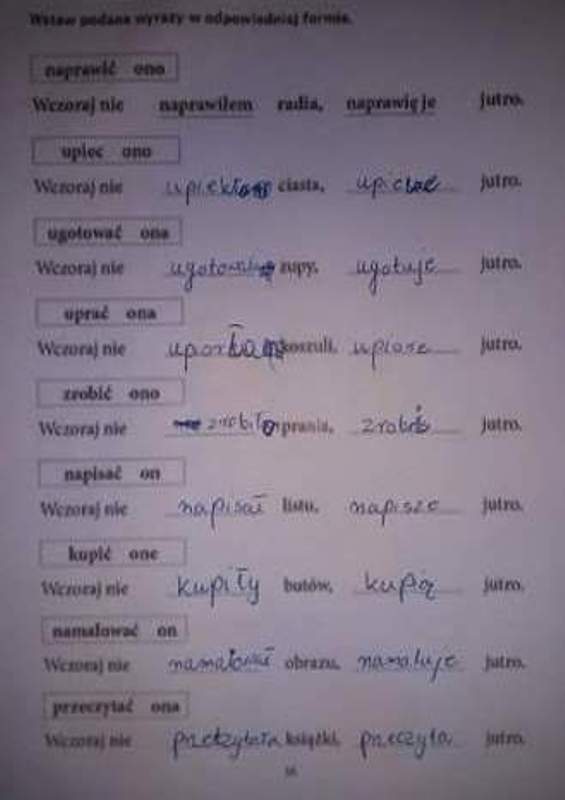 Wstaw podane wyrazy w odpowiedniej formie.
naprawić ono
Wczoraj nie naprawiłem radia, naprawię je jutro.
upiec ono
Wczoraj nie ciasta, jutro.
ugotować ona
Wczoraj nie zupy, ugotuje jutro.
uprać ona
Wczoraj nie uporła koszuli, upiore jutro.
zrobić ono
Wczoraj nie zrobiło prania, zrobi jutro.
napisać on
Wczoraj nie napisał listu, napisze jutro.
kupić one
Wczoraj nie kupiły butów, kupią jutro.
namalować on
Wczoraj nie namalował obrazu, namaluje jutro.
przeczytać ona
Wczoraj nie książki, przeczyta jutro.